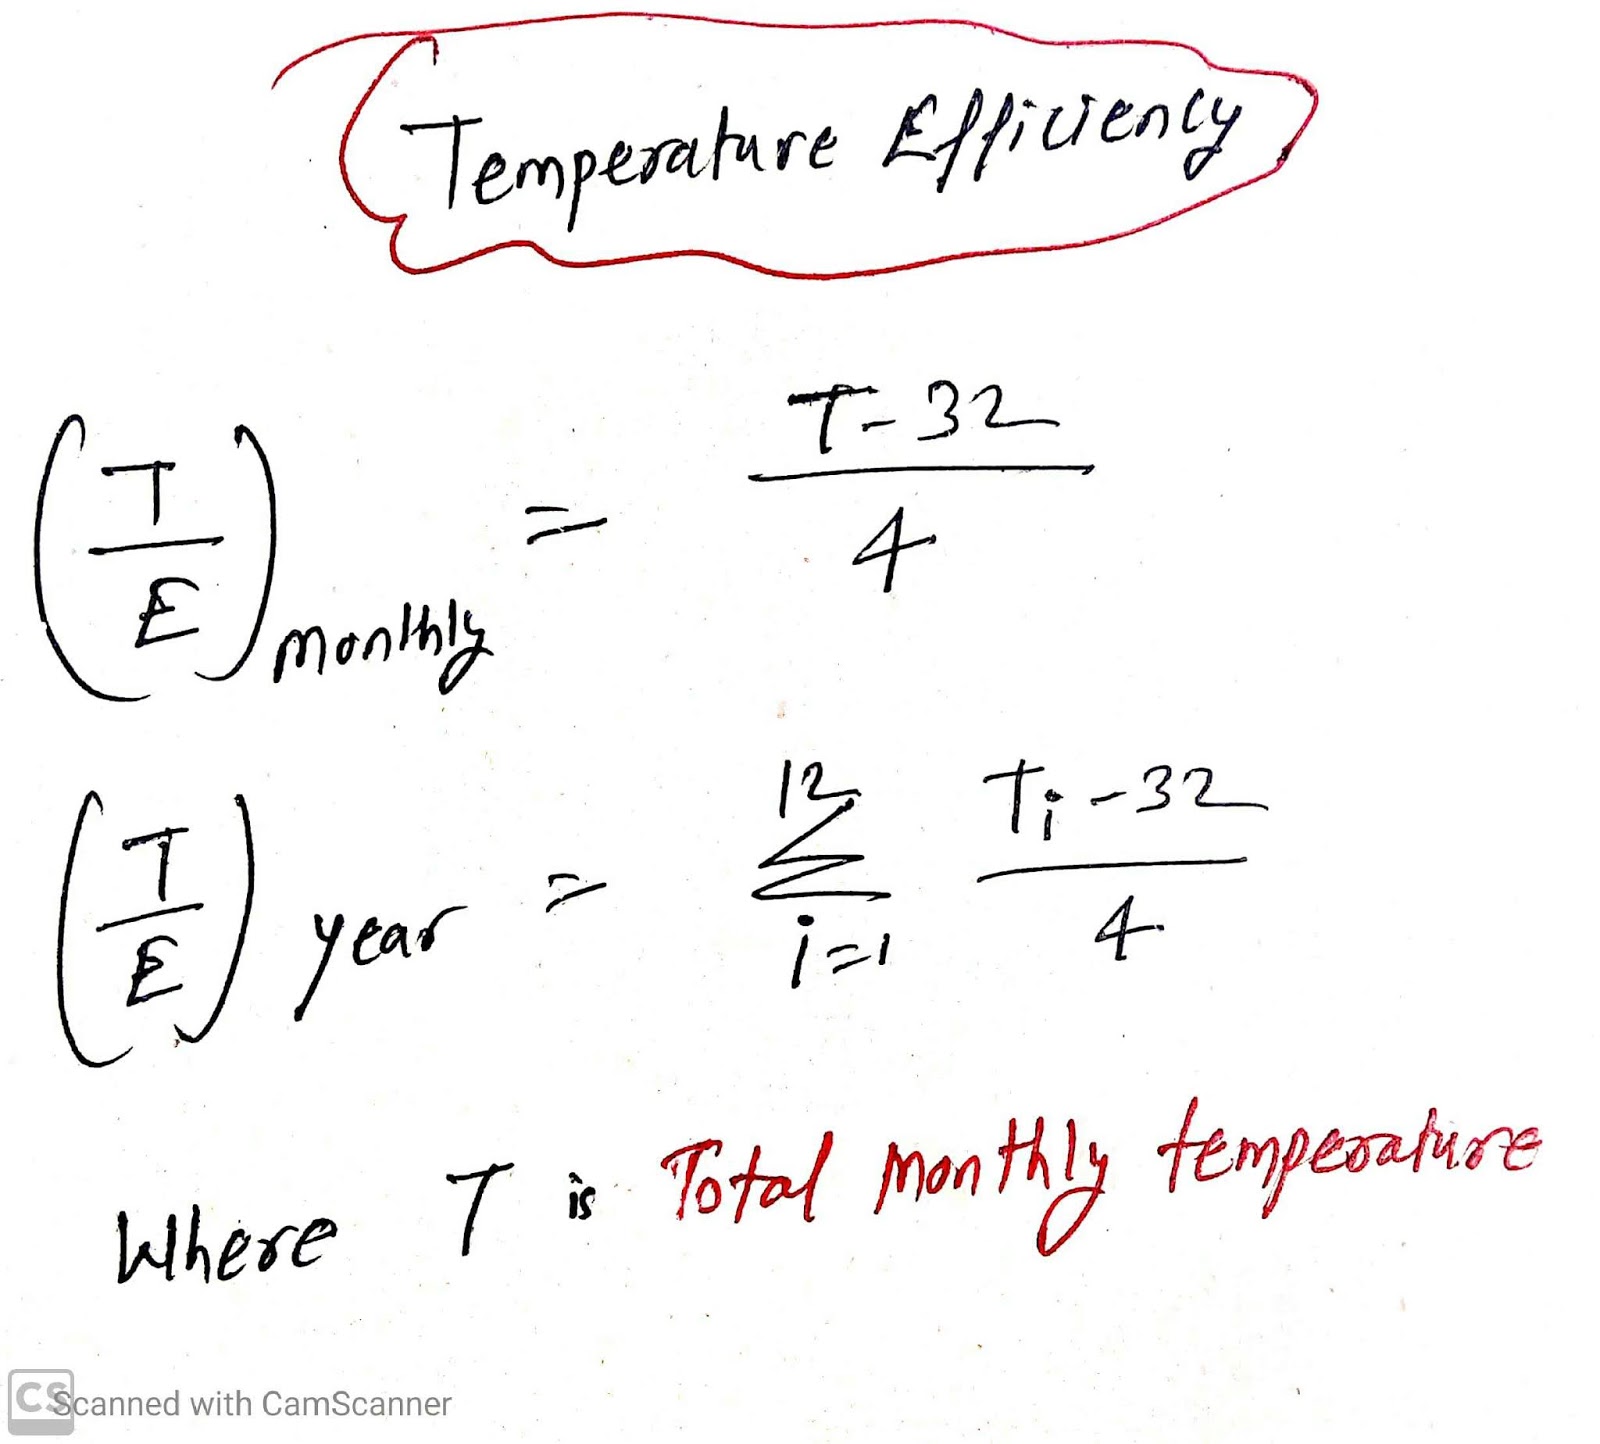 Temperature Efficiency
(T/E) monthly = T-32/4
(T/E) year = 12 Σ i=1 Ti-32/4
Where T is Total monthly temperature
CS Scanned with CamScanner